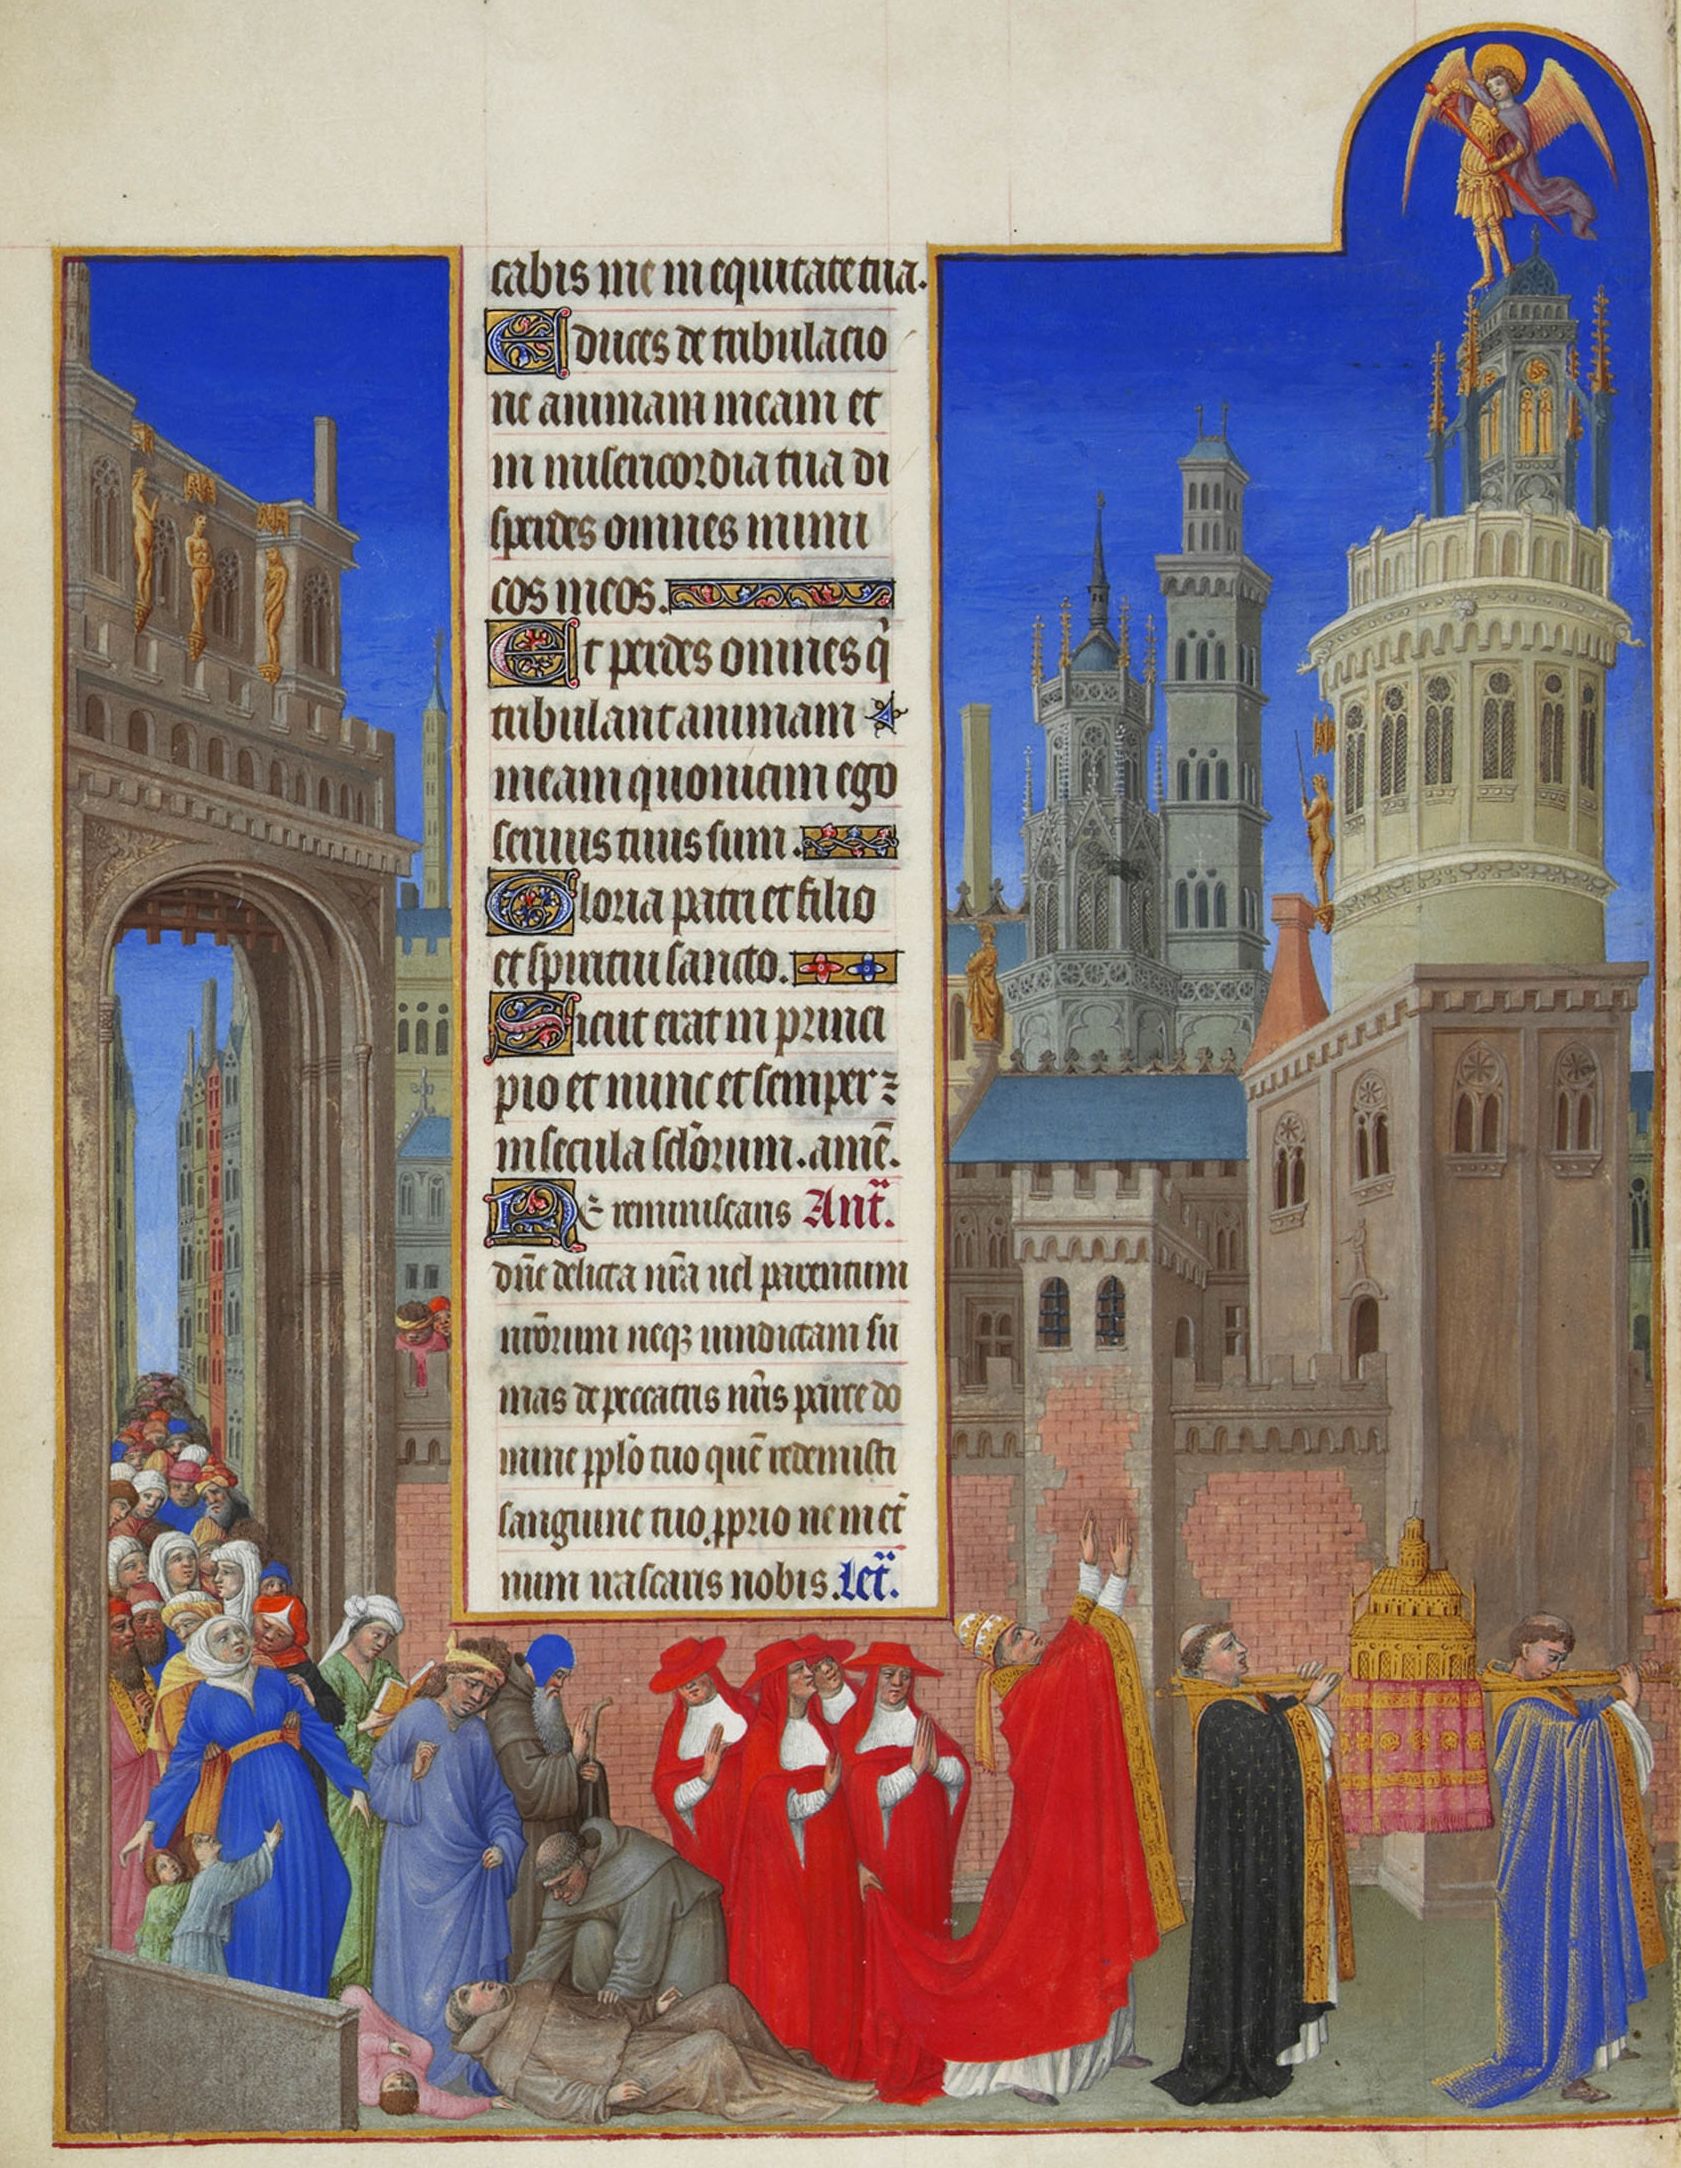 cabis me in equitate tua.
Educes de tribulacio
ne animam meam et
in misericordia tua di
sperdes omnes inimi
cos meos.
Et perdes omnes q̄
tribulant animam
meam quoniam ego
servus tuus sum.
Gloria patri et filio
et spiritui sancto.
Sicut erat in princi
pio et nunc et semper ⁊
in secula sclōrum. amē.
Ne reminiscaris Ant̄.
dn̄e delicta nr̄a vel parentum
nr̄orum neqꝫ vindictam su
mas de peccatis nr̄is parce do
mine pplō tuo quē redemisti
sanguine tuo pprio ne in et̄
num irascaris nobis. Let̄.